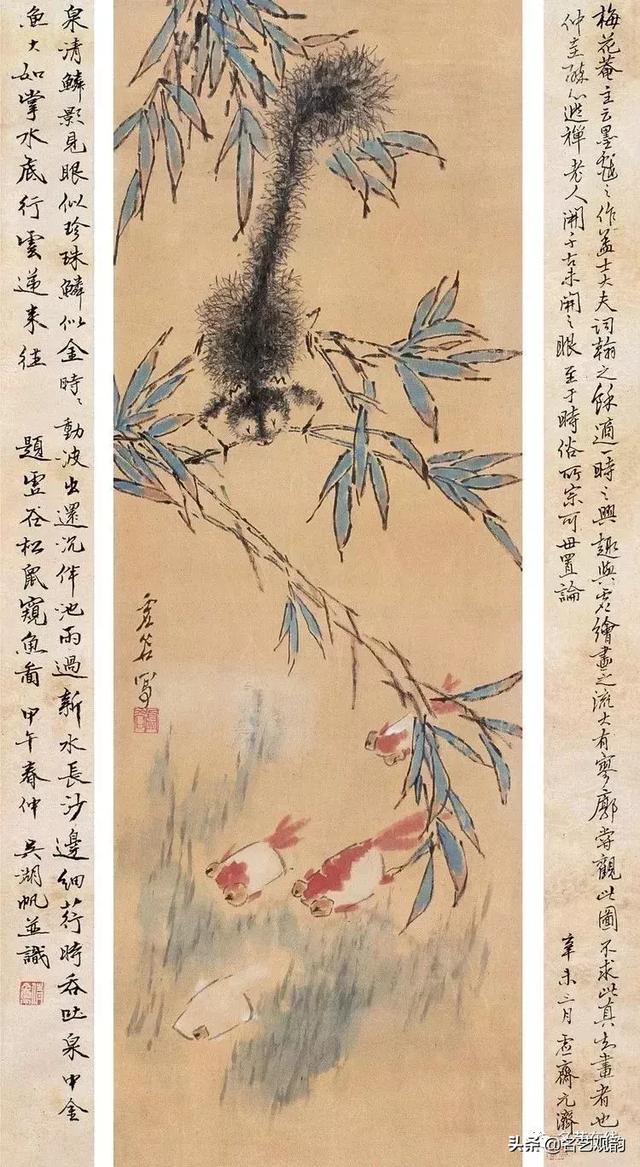 梅花菴主云墨戲之作蓋士大夫詞翰之餘適一時之興趣與夫繪畫之流大有寥廓嘗觀此圖不求此真知畫者也
仲圭心逃禪老人開千古未開之眼至于時俗所宗可毋置論
辛未三月虛齋元濟
虛谷寫
泉清鱗影見眼似珍珠鱗似金時〻動波出還沉伴池雨過新水長沙邊細荇時吞吐泉中金
魚大如掌水底行雲遞來往 題虛谷松鼠窺魚啚 甲午春仲 吳湖帆並識
头条 @名艺观韵